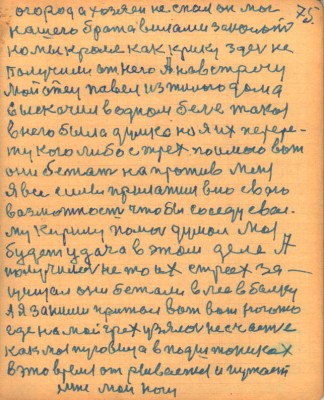 75.
огорода хозяен не спал он мог
нашего брата вилами заколоть
но мы кроме как крику здеу не
получили от него А навстречу
мой отец павел из жилого дома
выскочил в одном белье такой
в него была думка но я их пере-
му кого либо с трех поимаю вот
они бежат напротив меня
я все силы прилатил в по свою
возможност чтобы соседу свое-
му Кирилу помог думал мог
будет удача в этом деле А
получилос не то их стреех за-
они бежали в лев в балку
А я за ними притом вот вот
где на мой грех узялос несчастье
как моя пуговица в подштаниках
в это время отрывается и путает
мне мои ноги